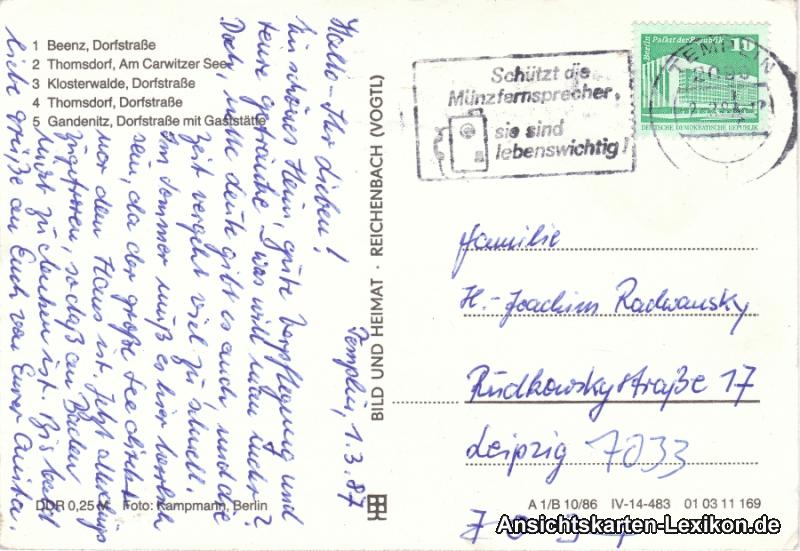 1 Beenz, Dorfstraße
2 Thomsdorf, Am Carwitzer See
3 Klosterwalde, Dorfstraße
4 Thomsdorf, Dorfstraße
5 Gandenitz, Dorfstraße mit Gaststätte
Templin, 1.3.87
Hallo – Ihr Lieben!
Ein schönes Heim, gute Verpflegung und
reine Getränke, was will man mehr?
Doch, nette Leute gibt es auch, und die
Zeit vergeht viel zu schnell.
Im Sommer muß es hier herrlich
sein, da der große See direkt
vor dem Haus ist. Jetzt allerdings
zugefroren, so daß an Baden
nicht zu denken ist. Bis bald
liebe Grüße an Euch von Eurer Anita
DDR 0,25 M Foto: Kampmann, Berlin
BILD UND HEIMAT · REICHENBACH (VOGTL)
Schützt die
Münzfernsprecher,
sie sind
lebenswichtig!
TEMPLIN
2090
Berlin, Palast der Republik 10
DEUTSCHE DEMOKRATISCHE REPUBLIK
Familie
H.-Joachim Radwansky
Rudkowskystraße 17
Leipzig 7033
A 1/B 10/86 IV-14-483 01 03 11 169
Ansichtskarten-Lexikon.de